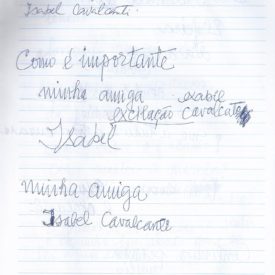 Isabel Cavalcanti.
Como é importante
minha amiga exabel
excitação cavalcate
Isabel
minha amiga
Isabel Cavalcante